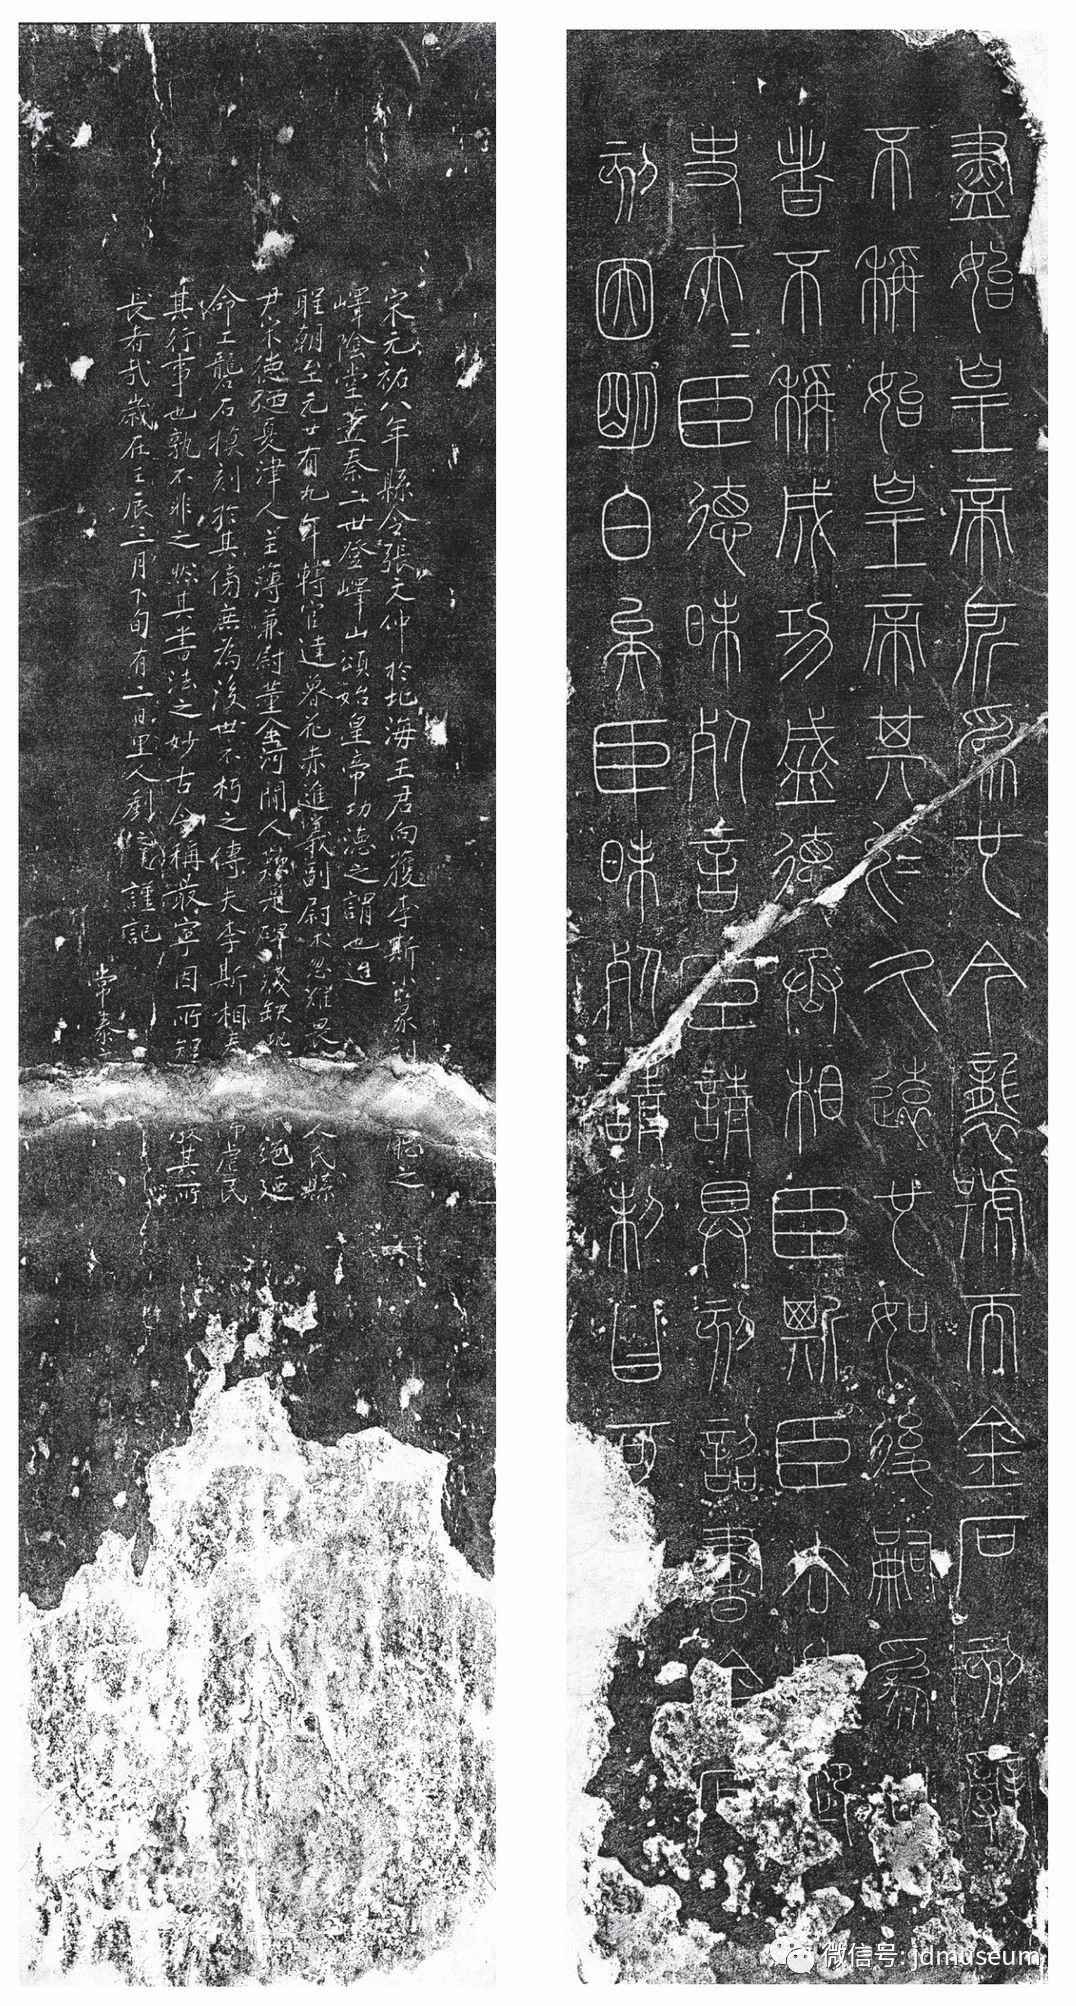 盡始皇帝所為也今襲號而金石刻辭
不稱始皇帝其於久遠也如後嗣為
者不稱成功盛德丞相臣斯臣去
史夫=臣德昧死言臣請具刻詔書金石
刻因明白矣臣昧死請制曰可
宋元祐八年縣令張文仲於北海王君向獲李斯小篆 之
嶧陰堂蓋秦二世登嶧山頌始皇帝功德之謂也迨
聖朝至元廿有九年轉官達魯花赤進義副尉 人民縣
尹宋德 夏津人主薄兼尉董金河間人 是碑殘缺 絕迺
命工礱石模刻於其傍庶為後世不朽之傳夫李斯相秦 虐民
其行事也孰不非之然其書法之妙古今稱最寧因所短 其所
長者哉歲在壬辰三月下旬有二日里人劉 謹記
常泰
微信号: jdmuseum